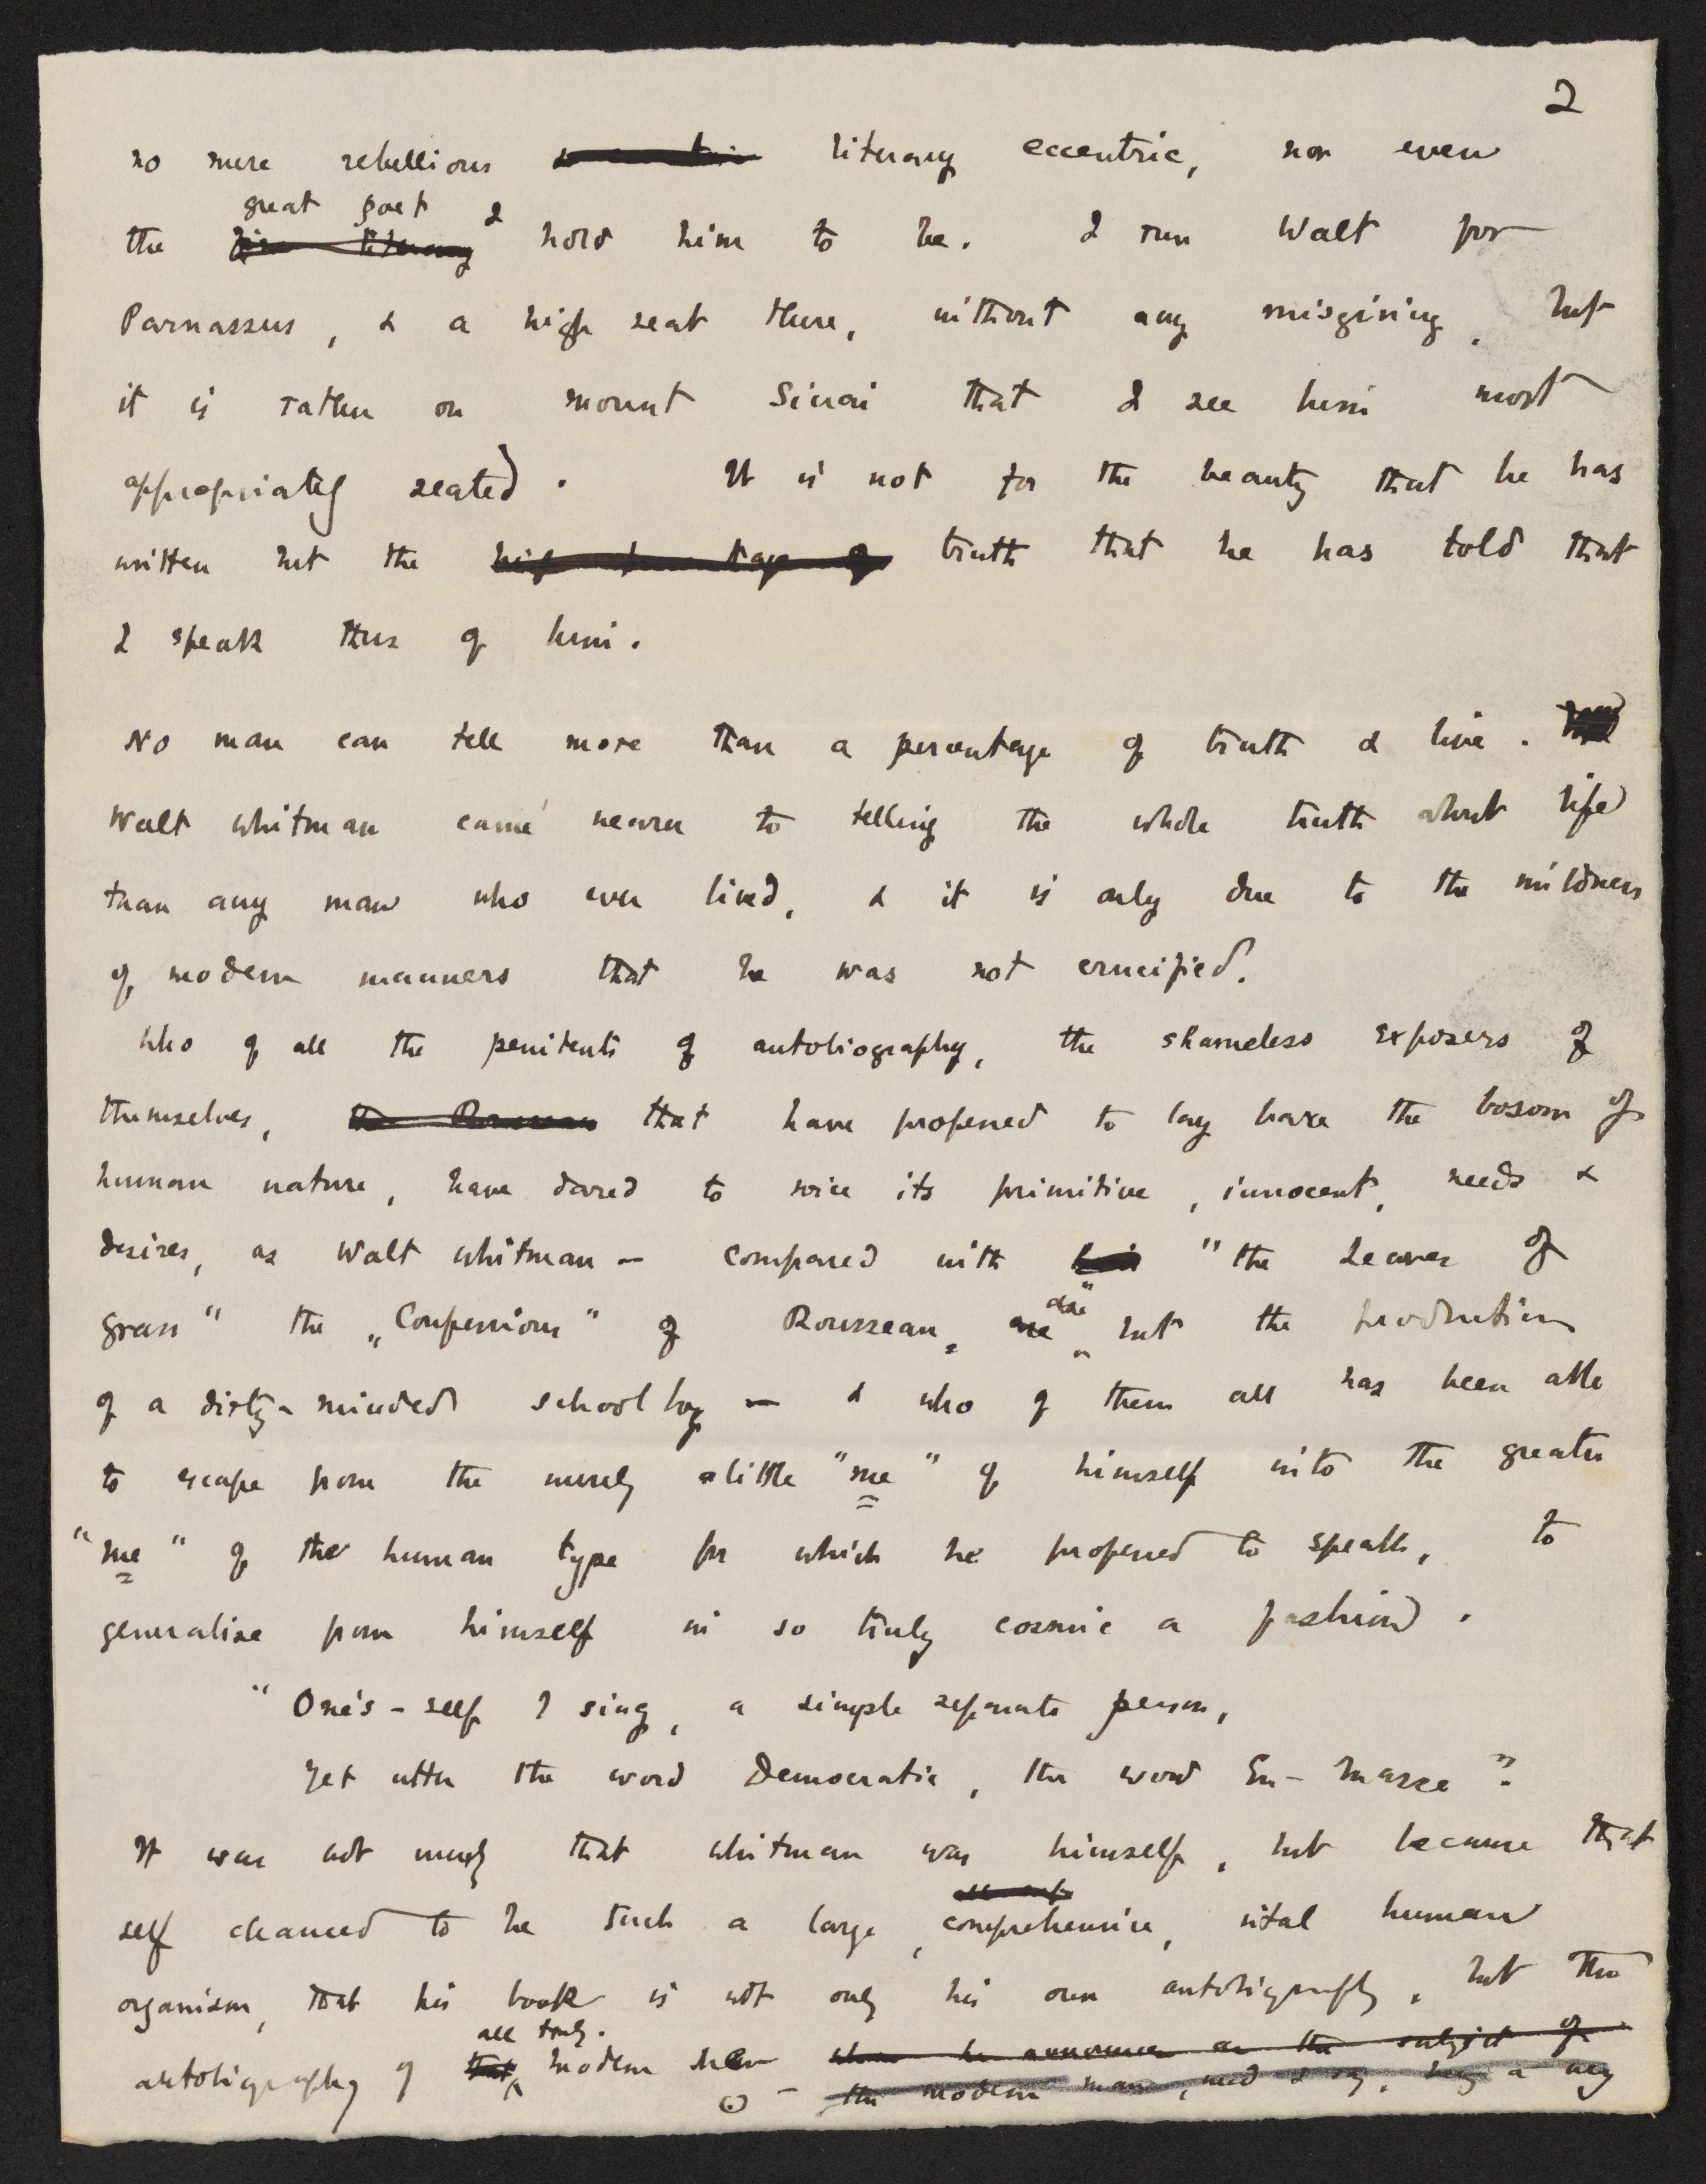 2
no mere rebellious literary eccentric, nor even
great poet
the fine literary I hold him to be. I run Walt for
Parnassus, & a high seat there, without any misgiving, but
it is rather on mount Sinai that I see him most
appropriately seated. It is not for the beauty that he has
written but the truth that he has told that
I speak thus of him.
No man can tell more than a percentage of truth & live.
Walt Whitman came nearer to telling the whole truth about life
than any man who ever lived, & it is only due to the mildness
of modern manners that he was not crucified.
Who of all the penitents of autobiography, the shameless exposers of
themselves, the Rousseaus that have professed to lay bare the bosom of
human nature, have dared to voice its primitive, innocent, needs &
desires, as Walt Whitman — compared with his "the Leaves of
Grass" the "Confessions" of Rousseau, are but the production
of a dirty-minded schoolboy — & who of them all has been able
to escape from the merely little "me" of himself into the greater
"me" of the human type for which he professed to speak, to
generalise from himself in so truly cosmic a fashion.
"One's-self I sing, a simple separate person,
Yet utter the word Democratic, the word En-Masse".
It was not merely that Whitman was himself, but because that
self chanced to be such a large, comprehensive, vital human
organism, that his book is not only his own autobiography, but the
all truly
autobiography of that modern man whom he announces as the subject of
the modern man, need I say, being a very